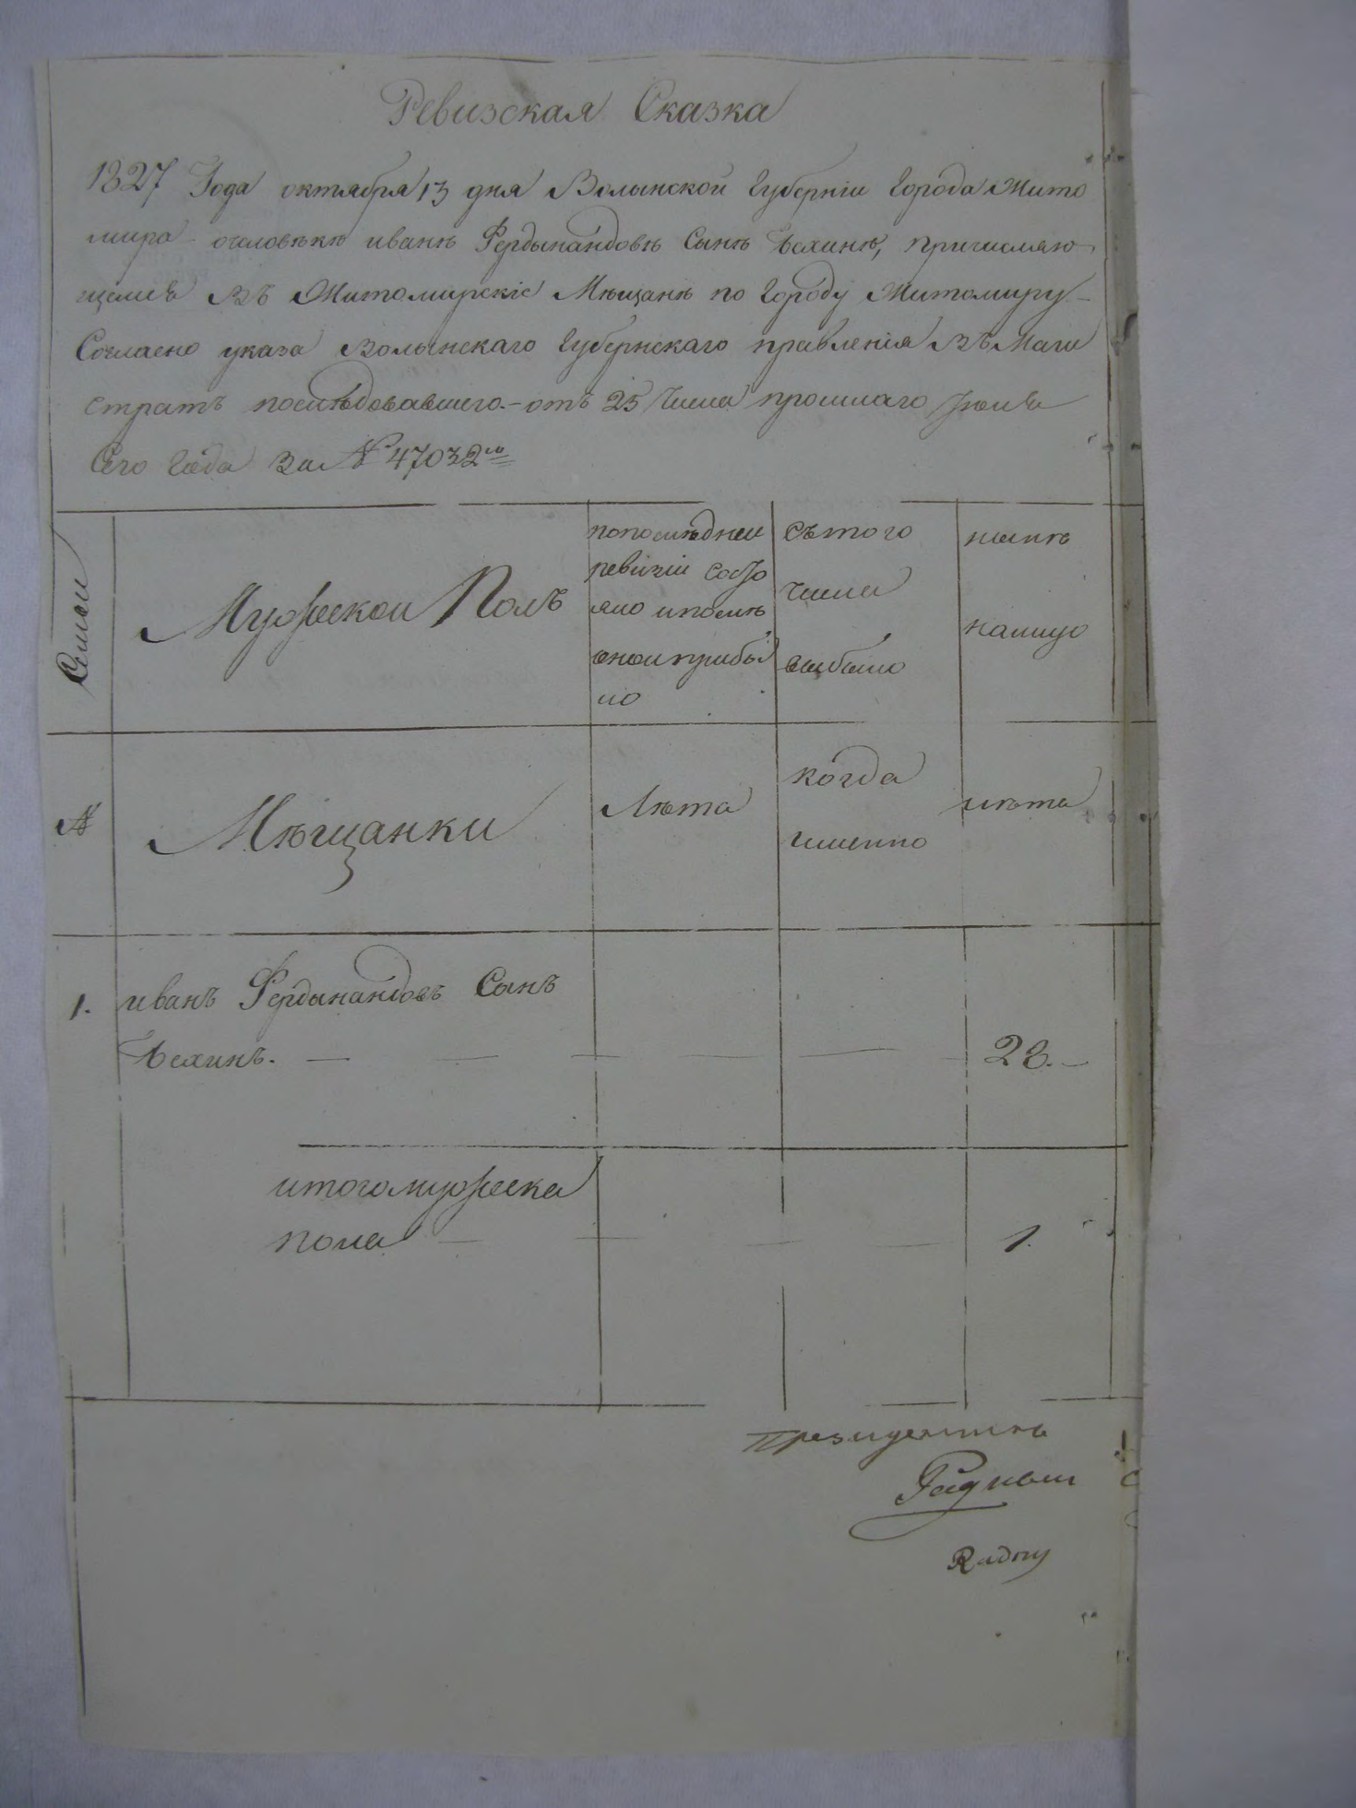 Ревизская Сказка
1827 Года октября 13 дня Волынской Губернiи Города Жито
мира очеловѣкѣ иванѣ Фердынандовѣ Сынѣ причисляю
щемся Въ Житомирскiе Мѣщанѣ по Городу Житомиру
Согласно указа Волынскаго Губернскаго правленiя Въ Маги
стратъ послѣдовавшего отъ 25 Числа прошлаго
Сего Года За № 47032мъ
Семьи
Мужескои Полъ
попослѣднеи
ревiзiи состо
яло ипослѣ
онои прибы
ло
Съ того
числа
выбыло
нынѣ
налицо
№
Мѣщанки
Лѣта
когда
именно
лѣта
1. иванъ Фердынандовъ Сынъ
28.
итого мужеска
пола
1.
Президентъ
Радный
Radny